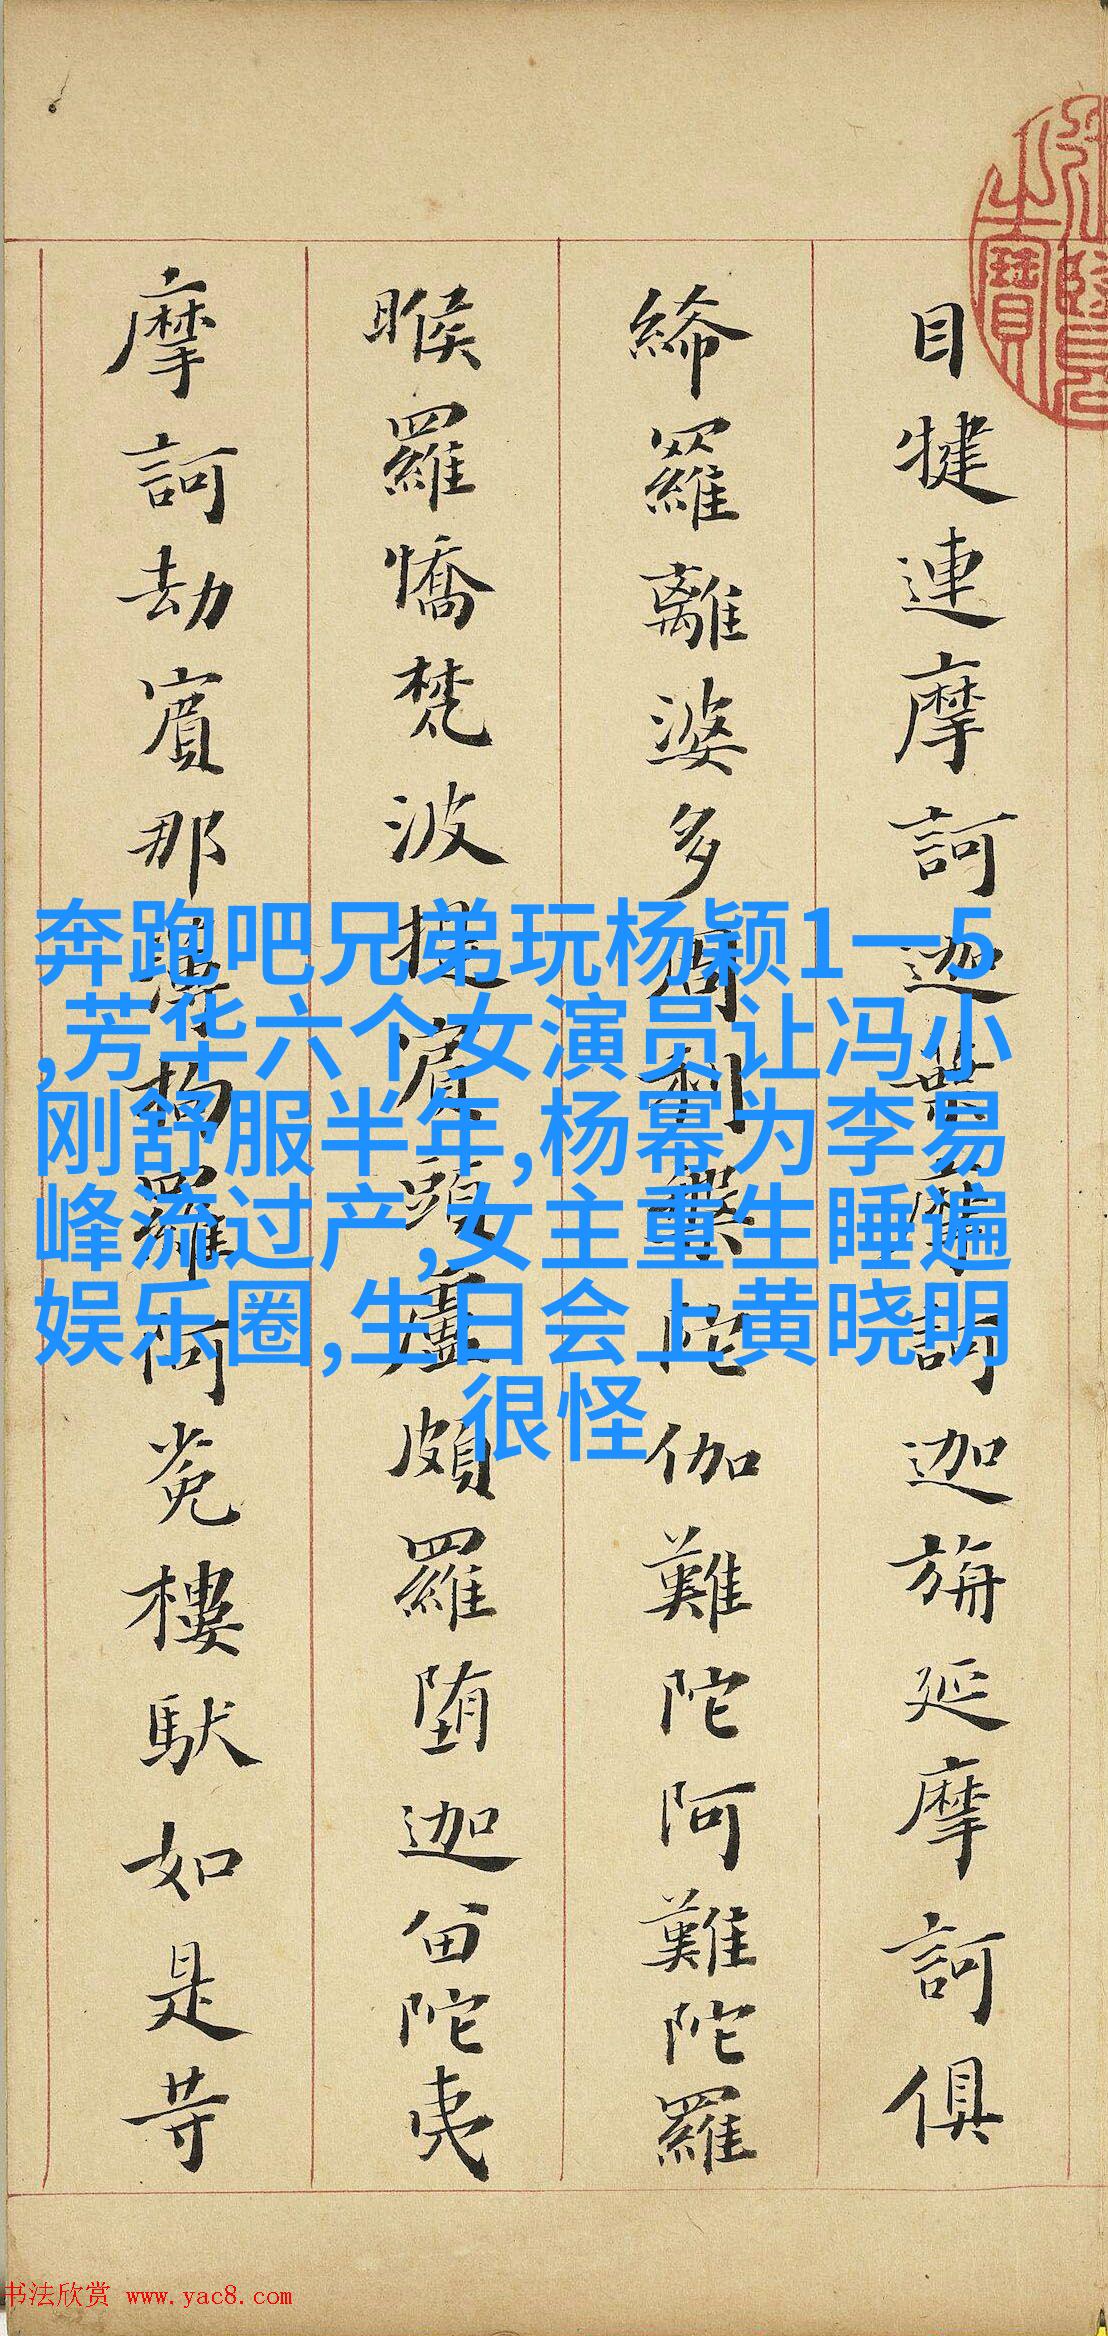 目犍連摩訶迦葉摩訶迦旃延摩訶俱
絺羅離婆多周利槃陀伽難陀阿難陀羅
睺羅憍梵波提賓頭盧頗羅堕迦留陀夷
摩訶劫賓那薄拘羅阿㝹樓馱如是等
奔跑吧兄弟玩杨颖1一5
,芳华六个女演员让冯小
刚舒服半年,杨幂为李易
峰流过产,女主重生睡遍
娱乐圈,生日会上黄晓明
很怪
书法欣赏 www.yac8.com